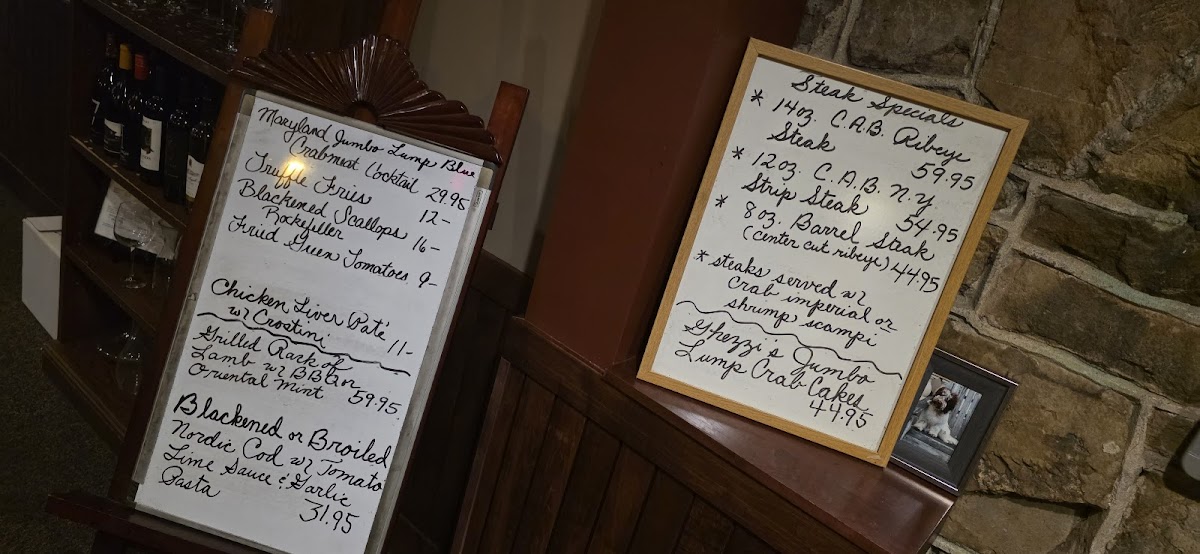 Maryland Jumbo Lump Blue
Crabmeat Cocktail 29.95
Truffle Fries 12-
Blackened Scallops
Rockefiller 16-
Fried Green Tomatoes 9-
Chicken Liver Paté
w/ Crostini 11-
Grilled Rack of
Lamb w/ BBQ or
Oriental Mint 59.95
Blackened or Broiled
Nordic Cod w/ Tomato
Lime Sauce & Garlic
Pasta 31.95
Steak Specials
* 14oz. C.A.B. Ribeye
Steak 59.95
* 12oz. C.A.B. N.Y.
Strip Steak 54.95
* 8oz. Barrel Steak
(center cut ribeye) 44.95
* steaks served w/
crab imperial or
shrimp scampi
Ghezzi's Jumbo
Lump Crab Cakes
44.95